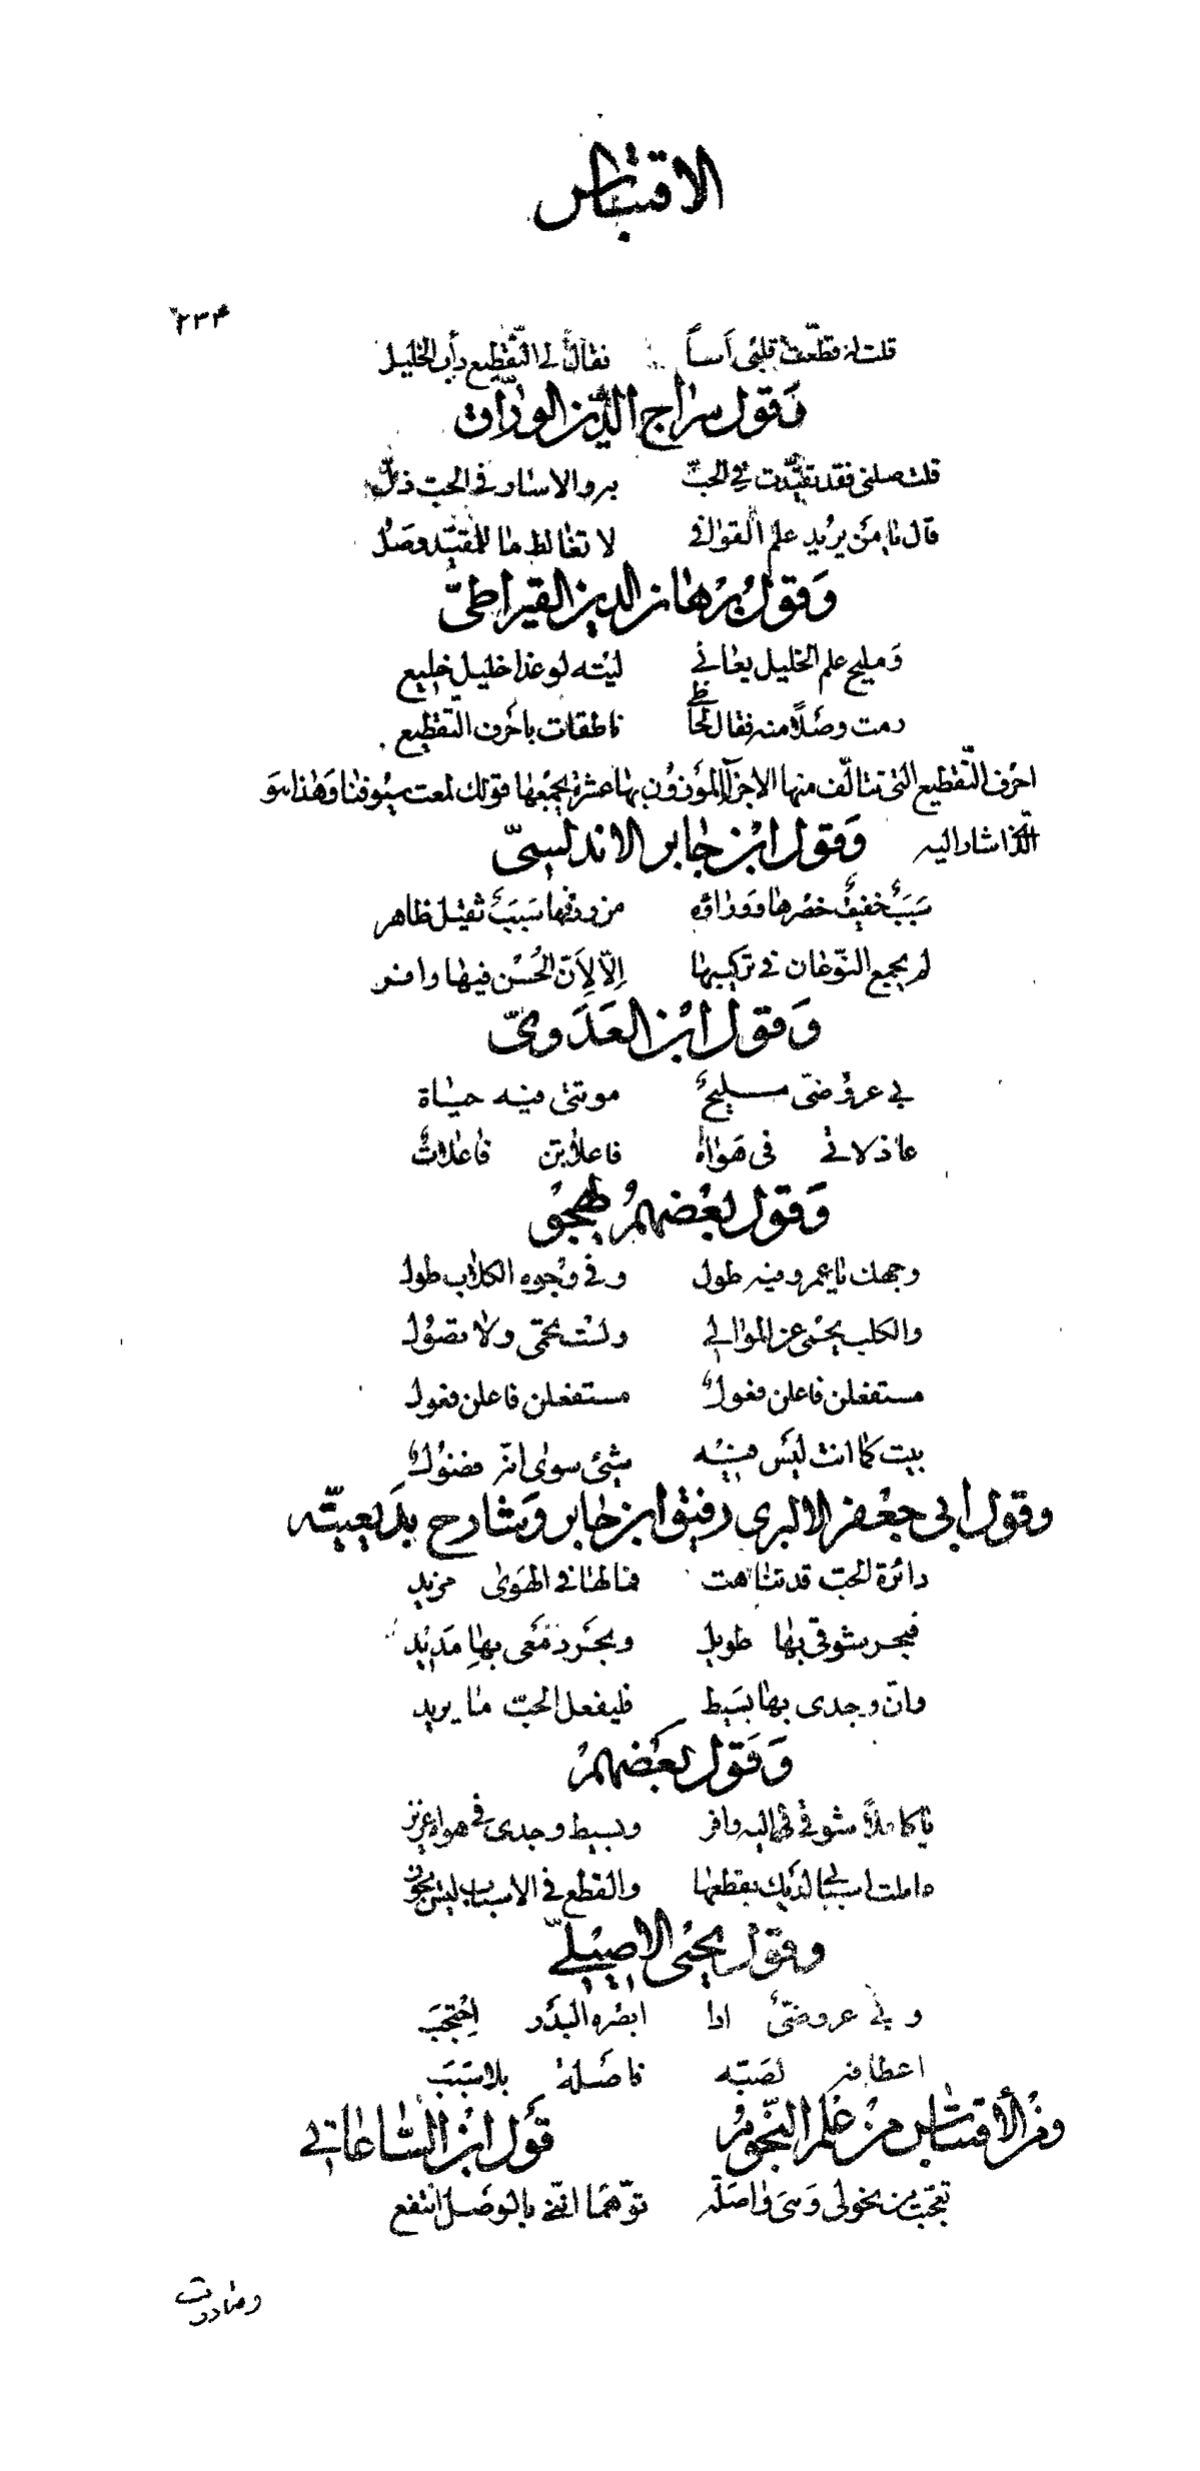 الاقتباس
٢٣٤
قلت اذ قطّعت قلبى اَساً فقال لى التّقطيع دأب الخليل
وَقول سراج الدّين الورّاق
قلت صلنى فقد تقيّدت فى الحبّ بر والاسار فى الحبّ ذلّ
قال يا من يريد علم القوافى لا تغالط ما للمقيّد وصل
وَقول برهان الدين القيراطىّ
وَمليح علم الخليل يعانى ليته لو غدا خليل خليع
رمت وصلاً منه فقال لحاظ ناطقات باحرف التّقطيع
احرف التّقطيع التى تتالّف منها الاجزآء الموزون بها عشرة يجمعها قولك لمعت سيوفنا وَهذا هو
الّذى اشار اليه وَقول ابن جابر الاندلسىّ
سَبَبٌ خفيفٌ خصرها ووراؤه من ردفها سَبَبٌ ثقيل ظاهر
لم يجمع النّوعان فى تركيبها اِلّا لِاَنّ الحُسْن فيها وافر
وَقول ابن العَدَوىّ
بى عروضىّ مليحٌ موتتى فيه حياة
عاذلاتى فى هَواهُ فاعلاتن فاعلاتٌ
وَقول بعضهم يهجو
وجهك يا عمرو فيه طول وفى وجوه الكلاب طول
والكلب يحمى عن الموالى ولست تحمى ولا تصول
مستفعلن فاعلن فعولٌ مستفعلن فاعلن فعول
بيت كما انت ليس فيه شئ سوى انّه فضولٌ
وقول ابى جعفر الالبرى رفيق ابن جابر وَشارح بديعيّته
دائرة الحبّ قد تناهت فما لها فى الهَوى مزيد
فبحر شوقى بها طويل وبحر دمعى بها مَديد
وانّ وجدى بها بسَيط فليفعل الحبّ ما يريد
وَقول بعضهم
يا كاملاً شوقى اليه وافر وبسيط وجدى فى هواه عزيز
عاملت اسبابى لديك بقطعها والقطع فى الاسباب ليس يجوز
وقول يحيى الاصيلىّ
وبى عروضىّ اذا ابصره البَدر اِحْتجَبَ
اعطافه لصَبّه فاصَلة بلا سَبَبَ
ومن الأقتباس من علم النّجوم قَول ابن السّاعاتى
تعجّبت من نحولى وَهى وٰاصلة توّهمًا انّنى بالوصَل انتفع